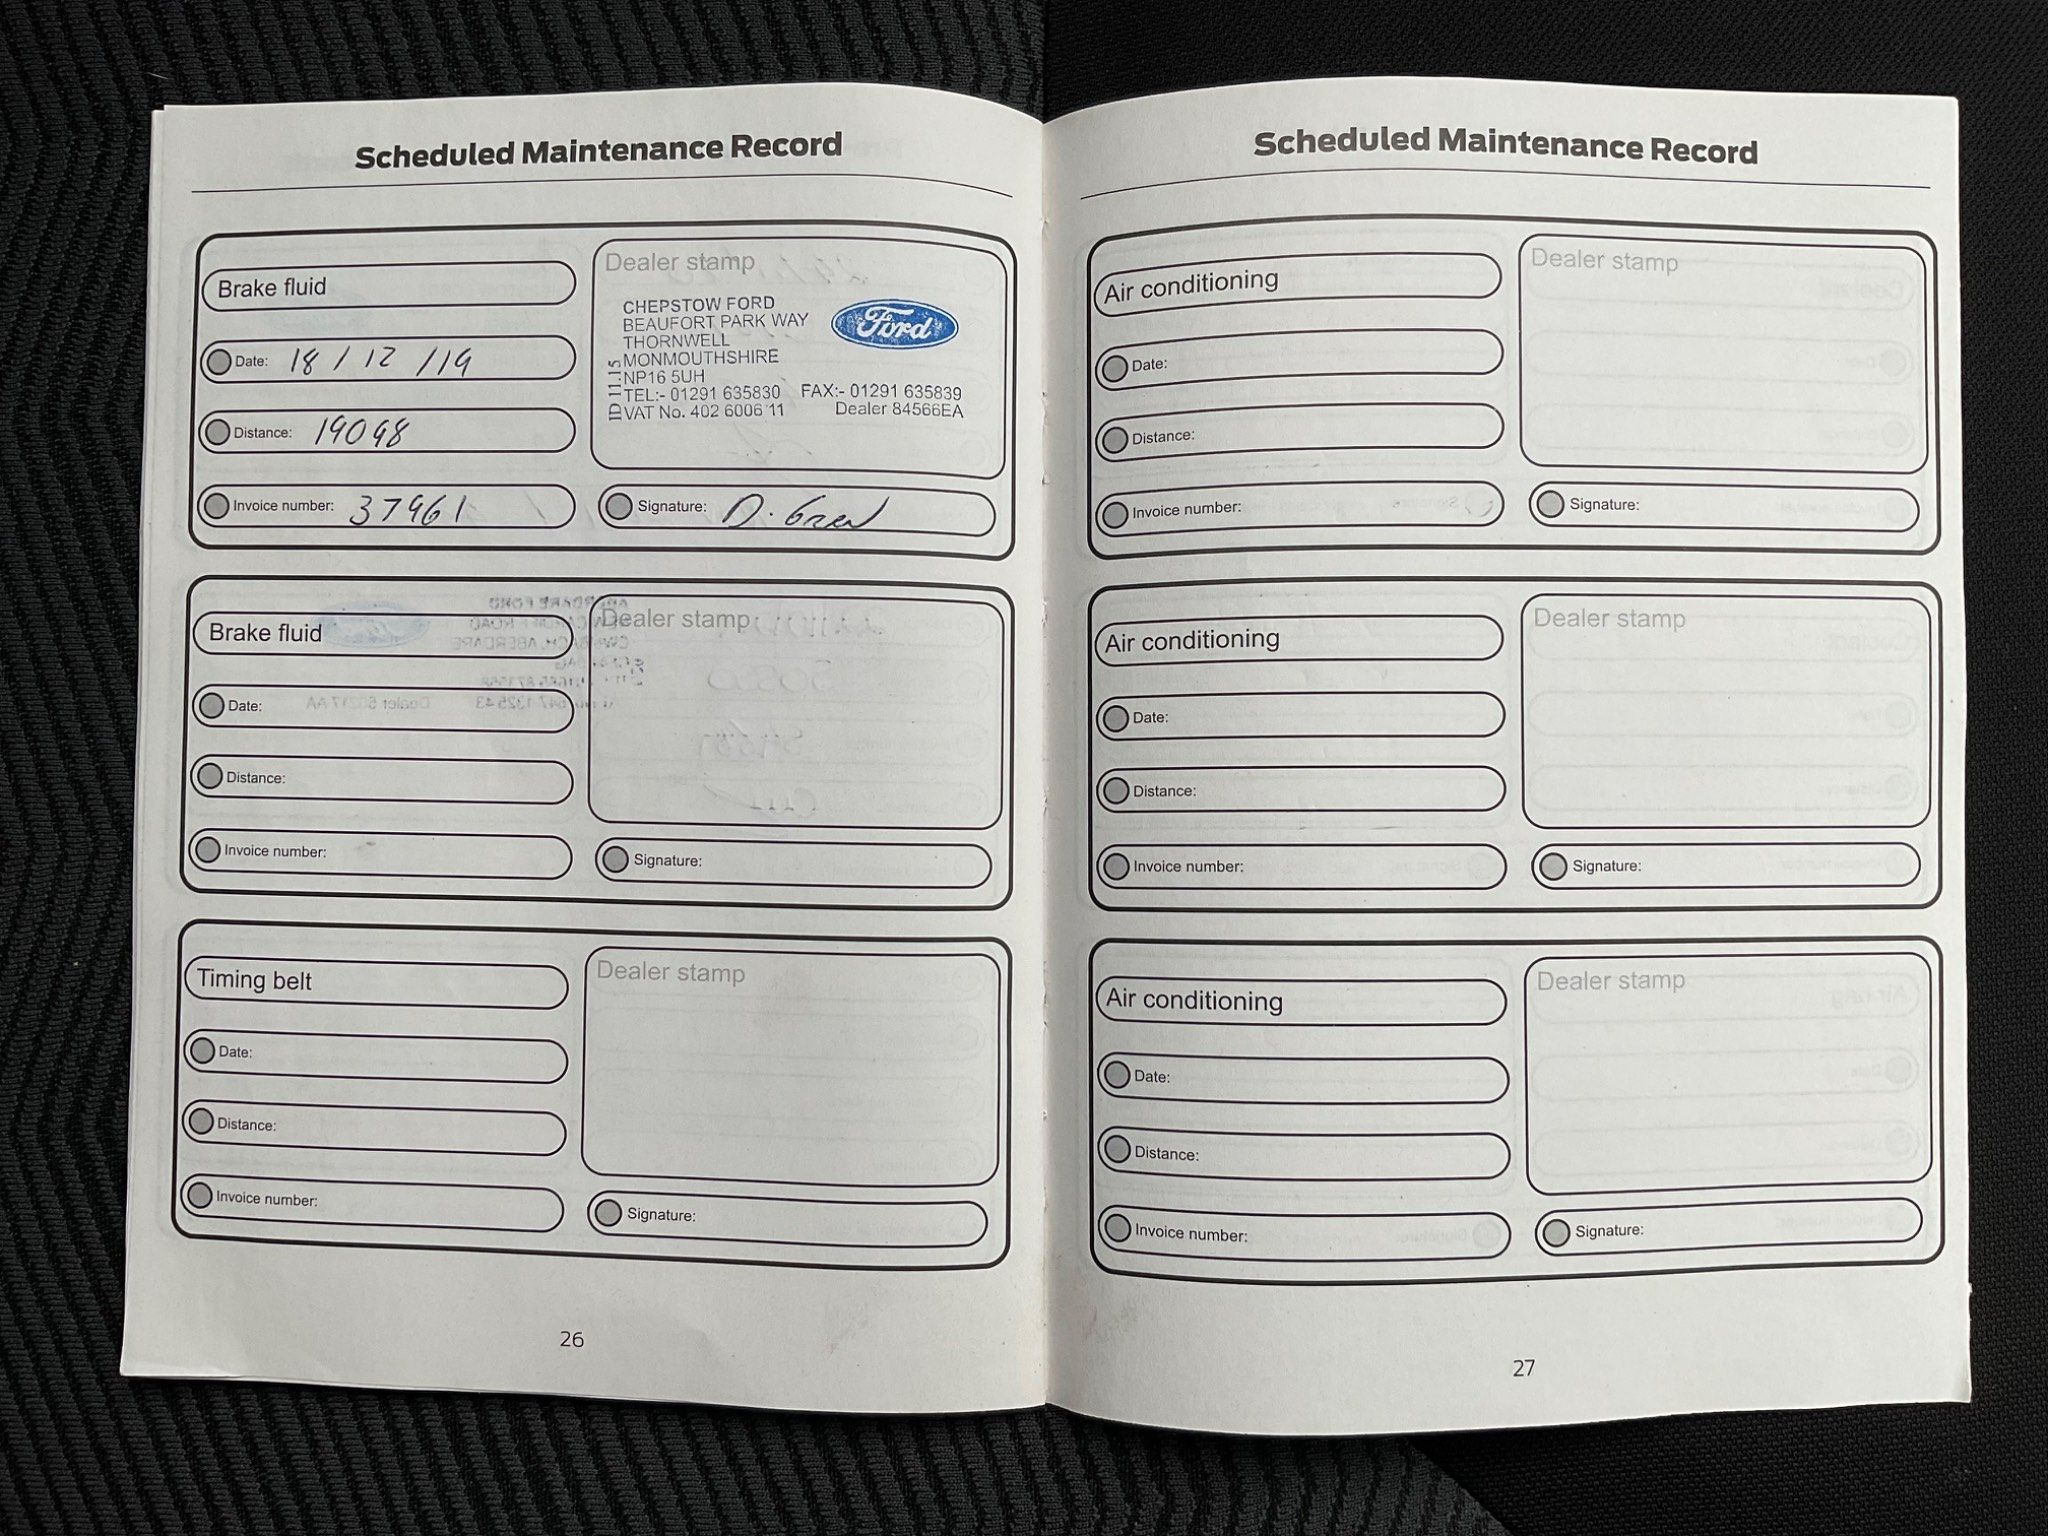 Scheduled Maintenance Record
Brake fluid
Date: 18/12/19
Distance: 19098
Invoice number: 37961
Dealer stamp
CHEPSTOW FORD
BEAUFORT PARK WAY
THORNWELL
MONMOUTHSHIRE
NP16 5UH
TEL:- 01291 635830 FAX:- 01291 635839
VAT No. 402 6006 11 Dealer 84566EA
ID 11.15
Ford
Signature: D.
Brake fluid
Date:
Distance:
Invoice number:
Dealer stamp
Signature:
Timing belt
Date:
Distance:
Invoice number:
Dealer stamp
Signature:
26
Scheduled Maintenance Record
Air conditioning
Date:
Distance:
Invoice number:
Dealer stamp
Signature:
Air conditioning
Date:
Distance:
Invoice number:
Dealer stamp
Signature:
Air conditioning
Date:
Distance:
Invoice number:
Dealer stamp
Signature:
27